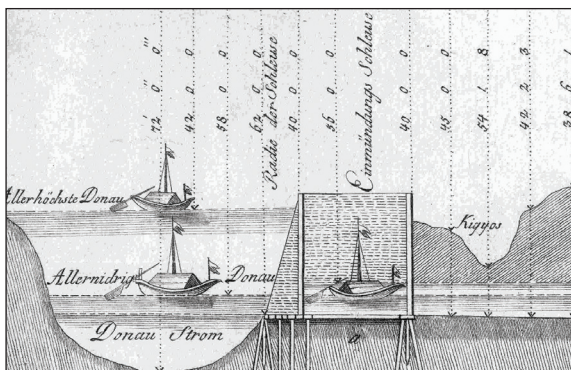 72' 0" 0'''
42. 0. 0
58. 0. 0
62. 0. 0
Radie der Schleuse
40. 0. 0
36. 0. 0
Einmündungs Schleuse
40. 0. 0
45. 0. 0
54. 1. 8
42. 2. 3
38. 6. 1
Allerhöchste Donau
Kigyos
Allernidrig Donau
Donau Strom
a